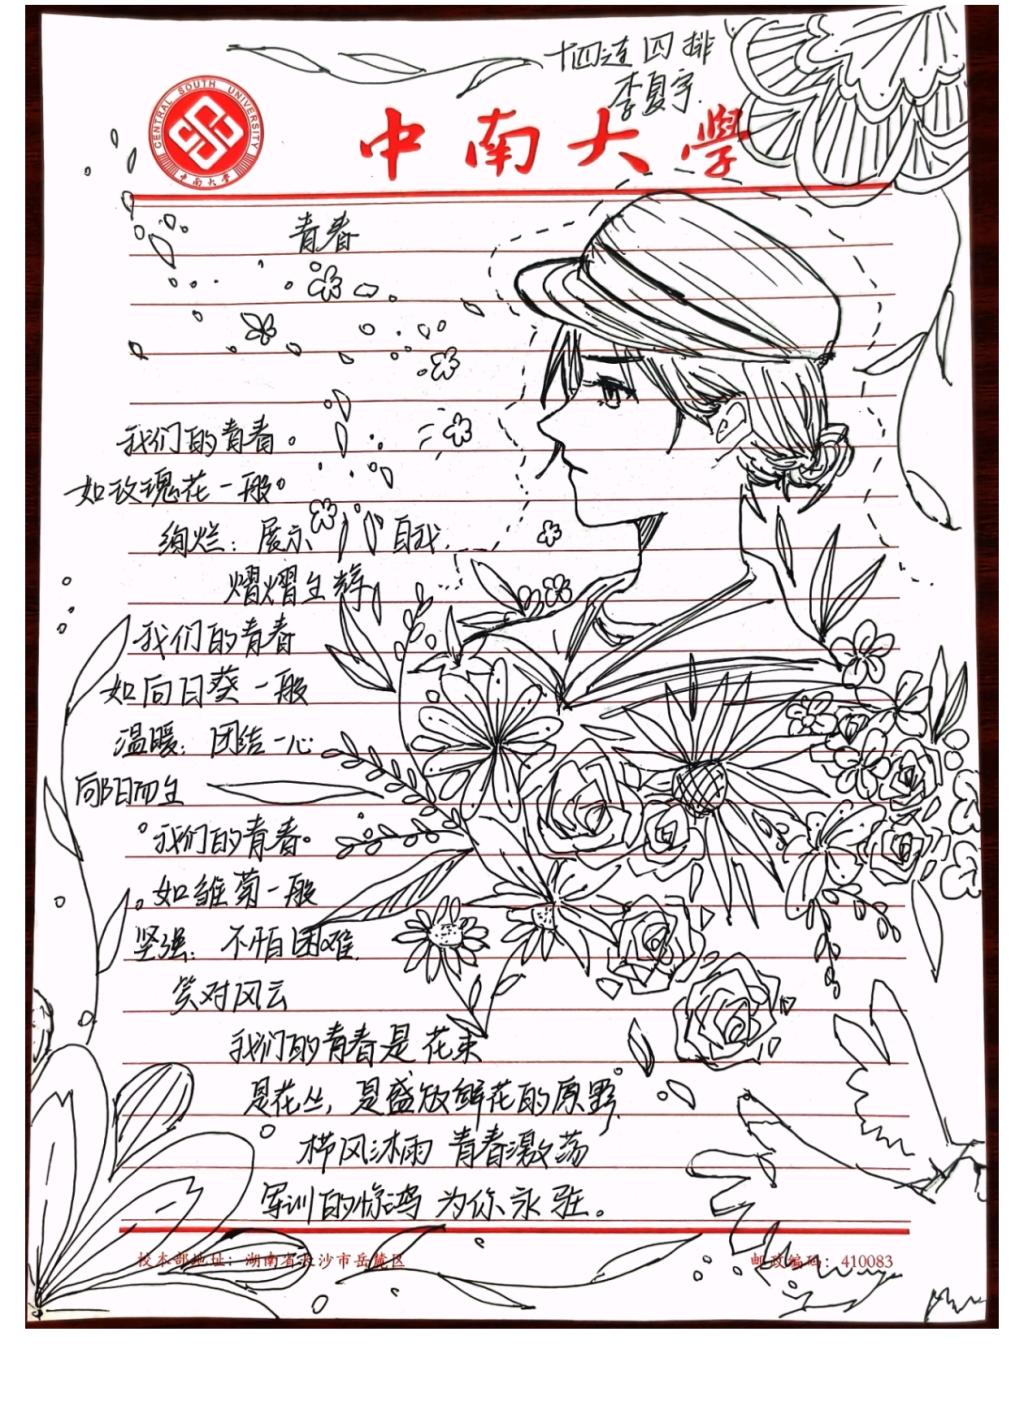 十四连四排
李夏宇
CENTRAL SOUTH UNIVERSITY
中南大学
中南大學
青春
我们的青春。
如玫瑰花一般。
绚烂：展示自我.
熠熠生辉
我们的青春
如向日葵一般
温暖：团结一心
向阳而生
我们的青春。
如雏菊一般
坚强：不怕困难.
笑对风云
我们的青春是花束
是花丛，是盛放鲜花的原野
栉风沐雨 青春激荡
军训的惊鸿 为你永驻。
校本部地址：湖南省长沙市岳麓区
邮政编码：410083